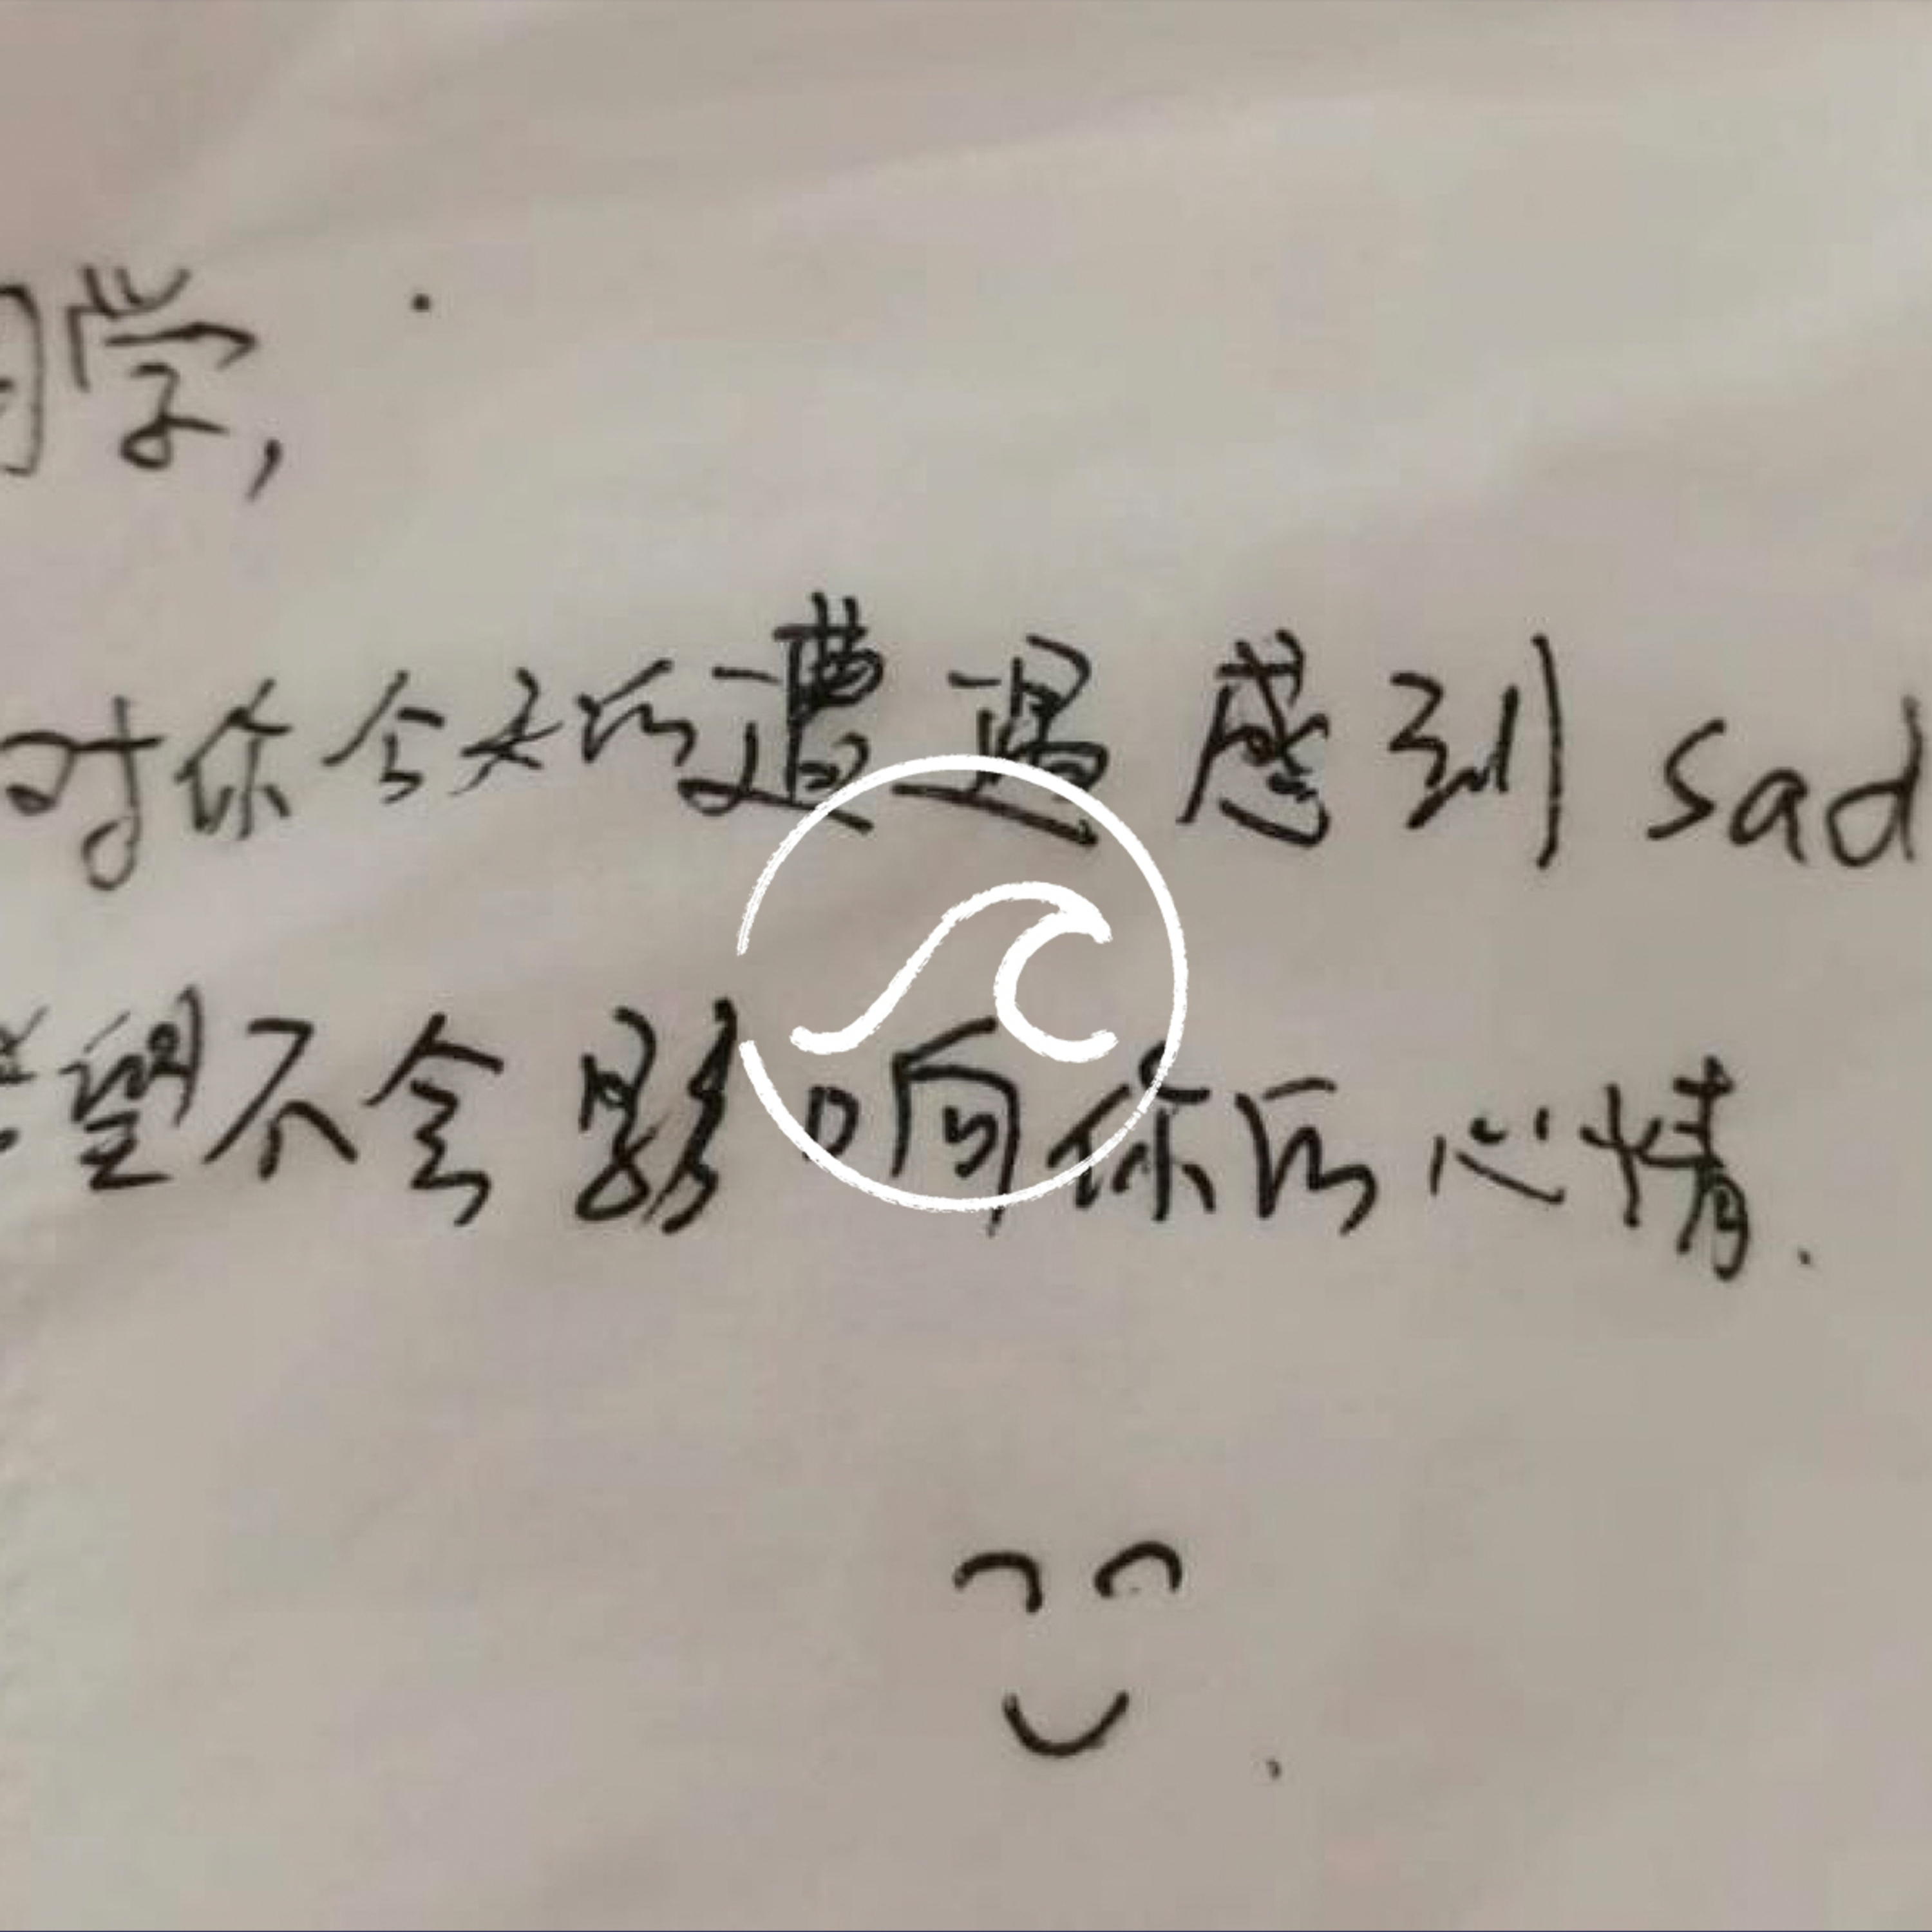 同学,
对你今天的遭遇感到sad
希望不会影响你的心情.